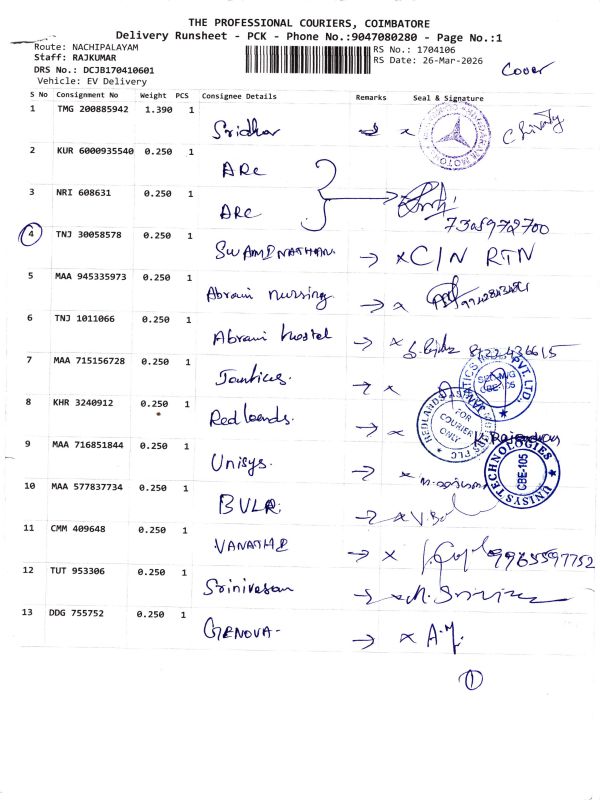 THE PROFESSIONAL COURIERS, COIMBATORE
Delivery Runsheet - PCK - Phone No.:9047080280 - Page No.:1
Route: NACHIPALAYAM
RS No.: 1704106
Staff: RAJKUMAR
RS Date: 26-Mar-2026
DRS No.: DCJB170410601
Cover
Vehicle: EV Delivery
S No Consignment No Weight PCS Consignee Details Remarks Seal & Signature
1 TMG 200885942 1.390 1 Sridhar x
2 KUR 6000935540 0.250 1 ARC
3 NRI 608631 0.250 1 ARC
7305972700
4 TNJ 30058578 0.250 1 SWAMINATHAN. → x C/N RTN
5 MAA 945335973 0.250 1 Abrami nursing → x
6 TNJ 1011066 0.250 1 Abrami hostel → x 8122436615
7 MAA 715156728 0.250 1 → x
PVT. LTD
CBE-105
8 KHR 3240912 0.250 1 Redlands. → x
FOR COURIER ONLY
9 MAA 716851844 0.250 1 Unisys. → x
UNISYS TECHNOLOGIES CBE-105
10 MAA 577837734 0.250 1 BVLR. → x
11 CMM 409648 0.250 1 VANATHI → x 9965597752
12 TUT 953306 0.250 1 Srinivasan → x
13 DDG 755752 0.250 1 GENOVA- → x A.M.
1